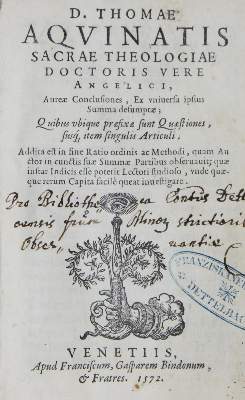 D. THOMAE
AQVINATIS
SACRAE THEOLOGIAE
DOCTORIS VERE
ANGELICI,
Aureæ Conclusiones, Ex vniuersa ipsius
Summa desumptæ;
Quibus vbique præfixæ sunt Quæstiones,
suis, item singulis Articuli.
Addita est in fine Ratio ordinis ac Methodi, quam Au
ctor in cunctis suæ Summæ Partibus obseruauit; quæ
instar Indicis esse poterit Lectori studioso, vnde quæ-
que rerum Capita facile queat inuestigare.
Pro Bibliotheca Contus Dett
ensis frum Minor strictioris
Obser uantiæ
FRANZISKAN
DETTELBACH
VENETIIS,
Apud Franciscum, Gasparem Bindonum,
& Fratres. 1572.